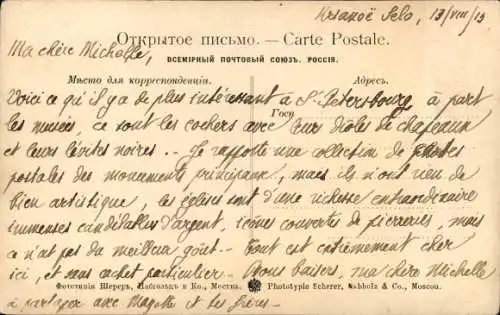 Krsanoë Selo, 13/VIII/13
Ma chère Michelle,
Открытое письмо. — Carte Postale.
ВСЕМІРНЫЙ ПОЧТОВЫЙ СОЮЗЪ. РОССІЯ.
Мѣсто для корреспонденціи. Адресъ.
Voici ce qu'il y a de plus intéressant à St Petersbourg, à part
Госп
les musées, ce sont les cochers avec leur drôles de chapeaux
et leurs lévites noires .. Je rapporte une collection de cartes
postales des monuments principaux, mais ils n'ont rien de
bien artistique, les églises sont d'une richesse extraordinaire
immenses candélabres d'argent, icônes couvertes de pierreries, mais
ce n'est pas du meilleur goût .. Tout est entièrement cher
ici, et sans cachet particulier — Bons baisers, ma chère Michelle
à partager avec Magette et tes frères —
Фототипія Шереръ, Набгольцъ и Ко., Москва. Phototypie Scherer, Nabholz & Co., Moscou.